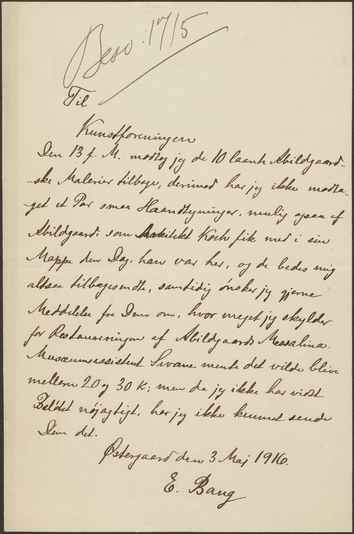 Besv: 17/5
Til
Kunstforeningen
Den 13 f. M. modtog jeg de 10 laante Abildgaard-
ske Malerier tilbage, derimod har jeg ikke modta-
get et Par smaa Haandtegninger, mulig ogsaa af
Abildgaard: som Arkitekt Koch fik med i sin
Mappe den Dag, han var her, og de bedes mig
altsaa tilbagesendt, samtidig ønsker jeg gjerne
Meddelelse fra Dem om, hvor meget jeg skylder
for Restaureringen af Abildgaards Messalina.
Museumsassistent Swane mente det vilde blive
mellem 20 og 30 K; men da jeg ikke har vidst
Beløbet nøjagtigt, har jeg ikke kunnet sende
Dem det.
Østergaard den 3 Maj 1916.
E. Bang